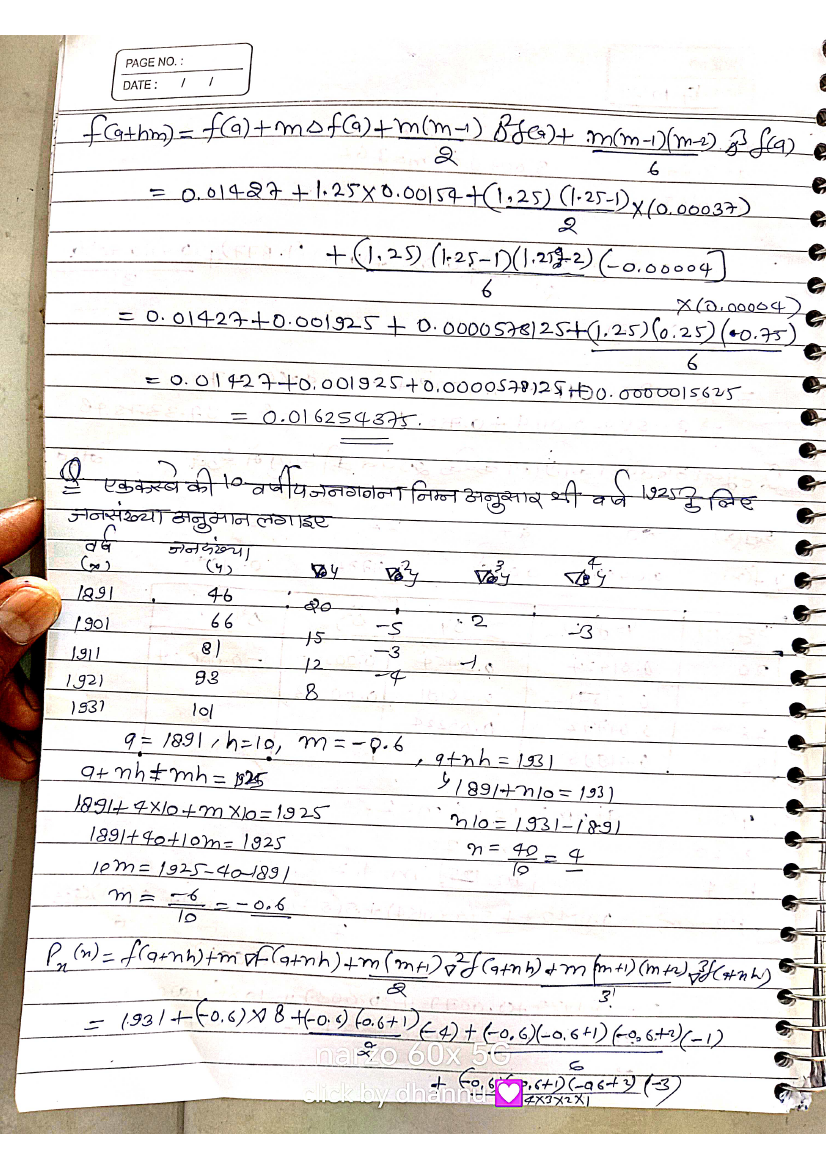 PAGE NO. :
DATE : / /
f(a+hm) = f(a) + m△f(a) + m(m-1)/2 △²f(a) + m(m-1)(m-2)/6 △³f(a)
= 0.01427 + 1.25×0.00154 + (1.25)(1.25-1)/2 ×(0.00037)
+ (1.25)(1.25-1)(1.25-2)/6 (-0.00004)
= 0.01427 + 0.001925 + 0.0000578125 + (1.25)(0.25)(-0.75)/6 ×(0.00004)
= 0.01427 + 0.001925 + 0.0000578125 + 0.0000015625
= 0.016254375.
Q एक कस्वे की 10 वर्षीय जनगनना निम्न अनुसार थी वर्ष 1925 के लिए
जनसंख्या अनुमान लगाइए
वर्ष (x) जनसंख्या (y) ∇y ∇²y ∇³y ∇⁴y
1891 46
20
1901 66 -5
15 2
1911 81 -3 -3
12 -1
1921 93 -4
8
1931 101
a = 1891, h=10, m = -0.6
, a+nh = 1931
a+nh+mh = 1925
1891+n10 = 1931
1891+4×10+m×10 = 1925
n10 = 1931-1891
1891+40+10m = 1925
n = 40/10 = 4
10m = 1925-40-1891
m = -6/10 = -0.6
Pn(x) = f(a+nh) + m∇f(a+nh) + m(m+1)/2 ∇²f(a+nh) + m(m+1)(m+2)/3! ∇³f(a+nh)
= 1931 + (-0.6)×8 + (-0.6)(0.6+1)/2 (-4) + (-0.6)(-0.6+1)(-0.6+2)/6 (-1)
+ (-0.6)(-0.6+1)(-0.6+2)/4×3×2×1 (-3)
narzo 60x 5G
click by dhannu